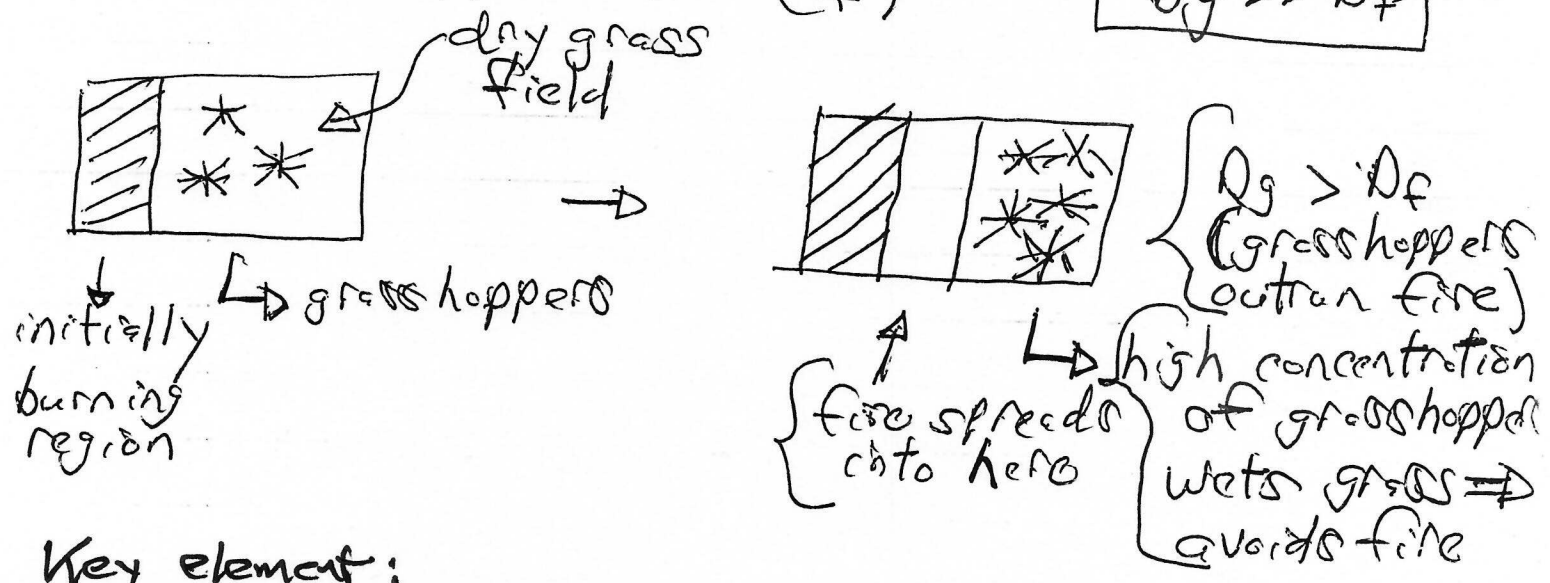 dry grass
field
grasshoppers
initially
burning
region
Dg > Df
(grasshoppers
outrun fire)
fire spreads
into here
high concentration
of grasshopper
wets grass ⇒
avoids fire
Key element: